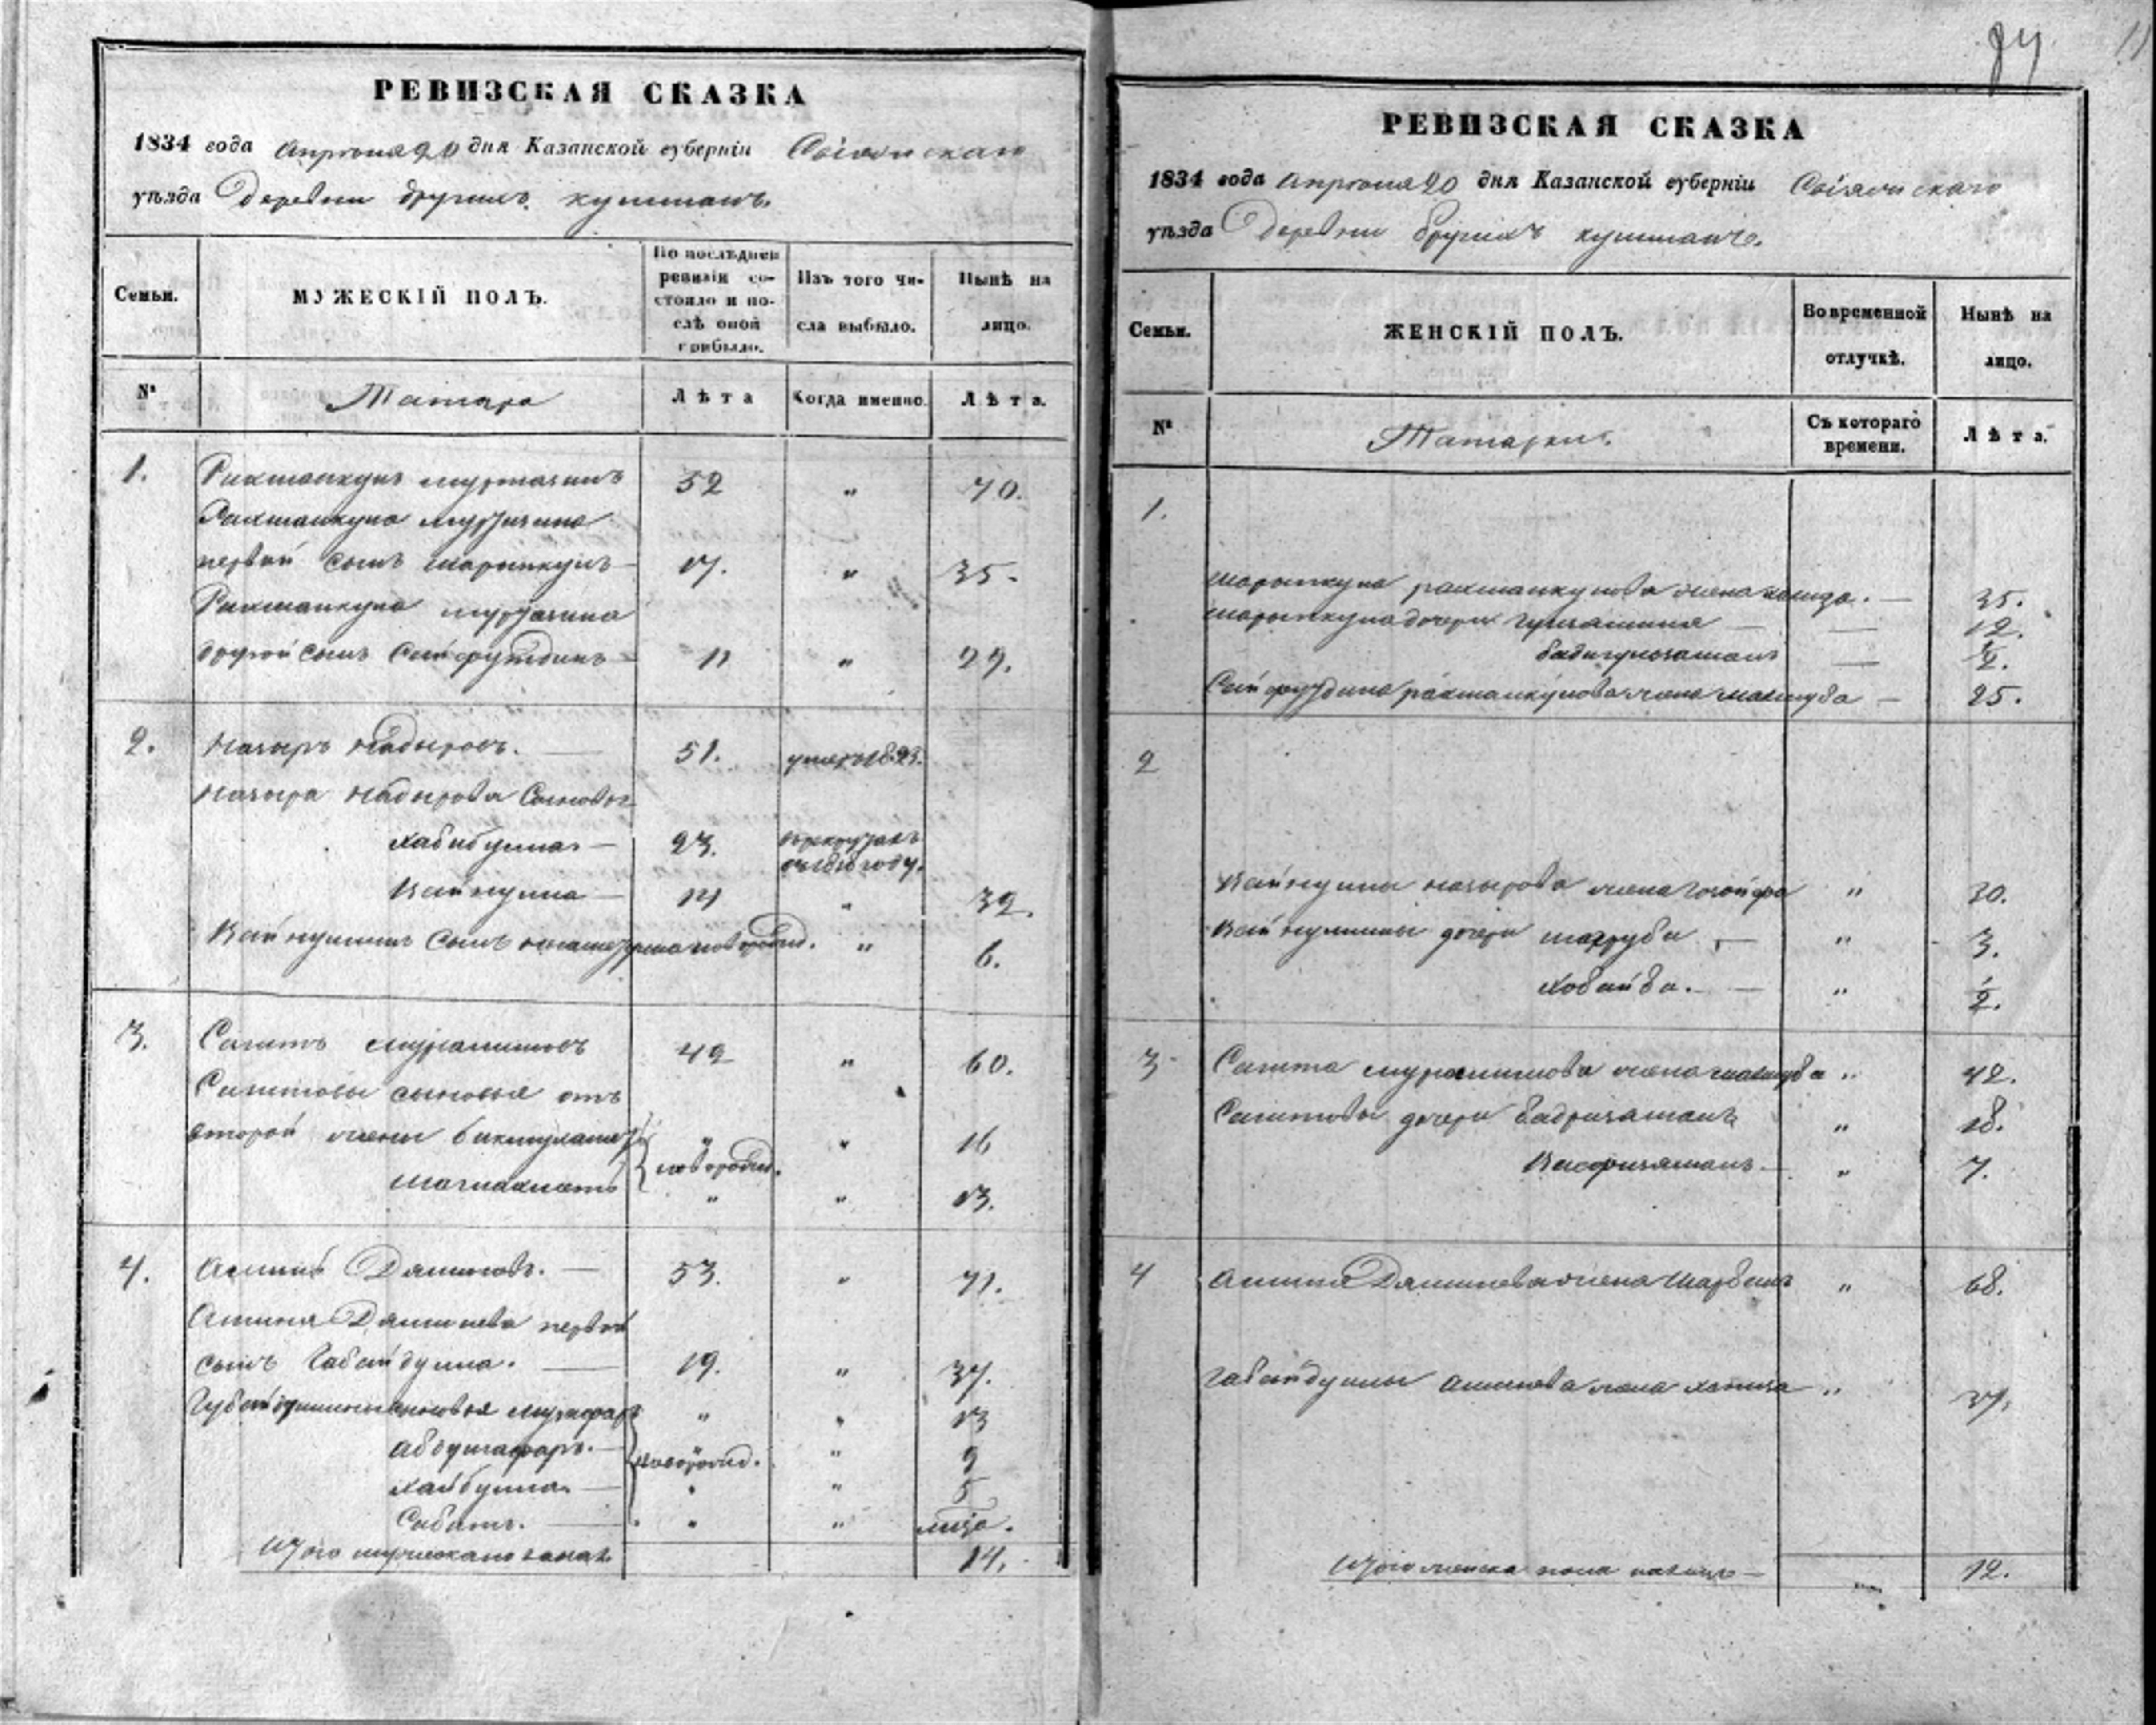 РЕВИЗСКАЯ СКАЗКА
1834 года Апреля 20 дня Казанской губерніи Свіяжскаго
уѣзда Деревни другихъ кушманъ.
Семьи.
МУЖЕСКІЙ ПОЛЪ.
По послѣдней ревизіи состояло и послѣ оной прибыло.
Изъ того числа выбыло.
Нынѣ на лицо.
№
Татара
Лѣта
Когда именно.
Лѣта.
1. Рахманкулъ муртазинъ 52 " 70.
Рахманкула муртазина
первой сынъ шарыпкулъ 17. " 35.
Рахманкула муртазина
другой сынъ Сайфутдинъ 11 " 29.
2. Назыръ Надыровъ. 51. умеръ 1823.
Назыра Надырова Сыновья
хабибулла 23. въ рекрутахъ
году.
Вайнулла 14 " 32.
Сынъ новорожд. " 6.
3. Сагитъ 42 " 60.
Сагитовы сыновья отъ
второй жены " " 16
новорожд.
шагиахметъ " " 13.
4. Аминъ Даминовъ. 53. " 71.
Аминя Даминева первой
сынъ Габайдулла. 19. " 37.
сыновья " " 13
абдулгафаръ. " 9
новорожд.
хайбулла. " " 5
Сабитъ. " "
Итого мужеска на лицо 14.
84
РЕВИЗСКАЯ СКАЗКА
1834 года Апреля 20 дня Казанской губерніи Свіяжскаго
уѣзда Деревни другихъ кушманъ.
Семьи.
ЖЕНСКІЙ ПОЛЪ.
Во временной отлучкѣ.
Нынѣ на лицо.
№
Татарки.
Съ котораго времени.
Лѣта.
1.
шарыпкула рахманкулова жена 35.
шарыпкула дочери 12.
бадигулзаманъ 1/2.
Сайфутдина рахманкулова жена махуба 25.
2
Вайнуллы назырова жена " 30.
Вайнуллины дочери " 3.
хобайба. " 1/2.
3 Сагита жена махуба " 42.
Сагитовы дочери бадризаманъ " 18.
" 7.
4 Аминя Даминева жена " 68.
Габайдуллы Аминева жена " 37.
Итого женска пола на лицо 12.